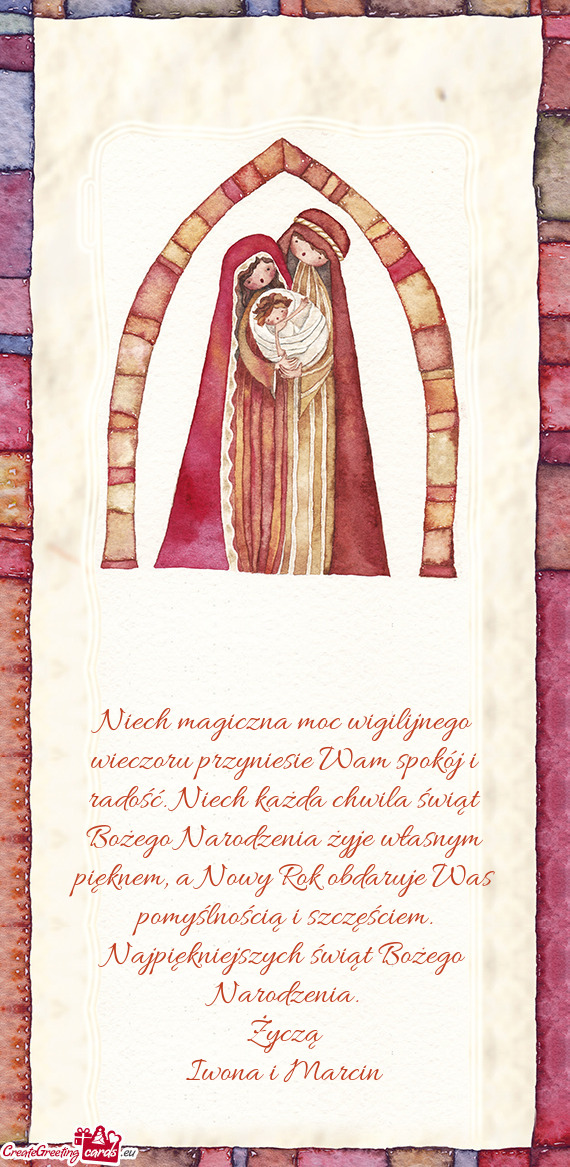 Niech magiczna moc wigilijnego
wieczoru przyniesie Wam spokój i
radość. Niech każda chwila świąt
Bożego Narodzenia żyje własnym
pięknem, a Nowy Rok obdaruje Was
pomyślnością i szczęściem.
Najpiękniejszych świąt Bożego
Narodzenia.
Życzą
Iwona i Marcin
CreateGreeting cards .eu